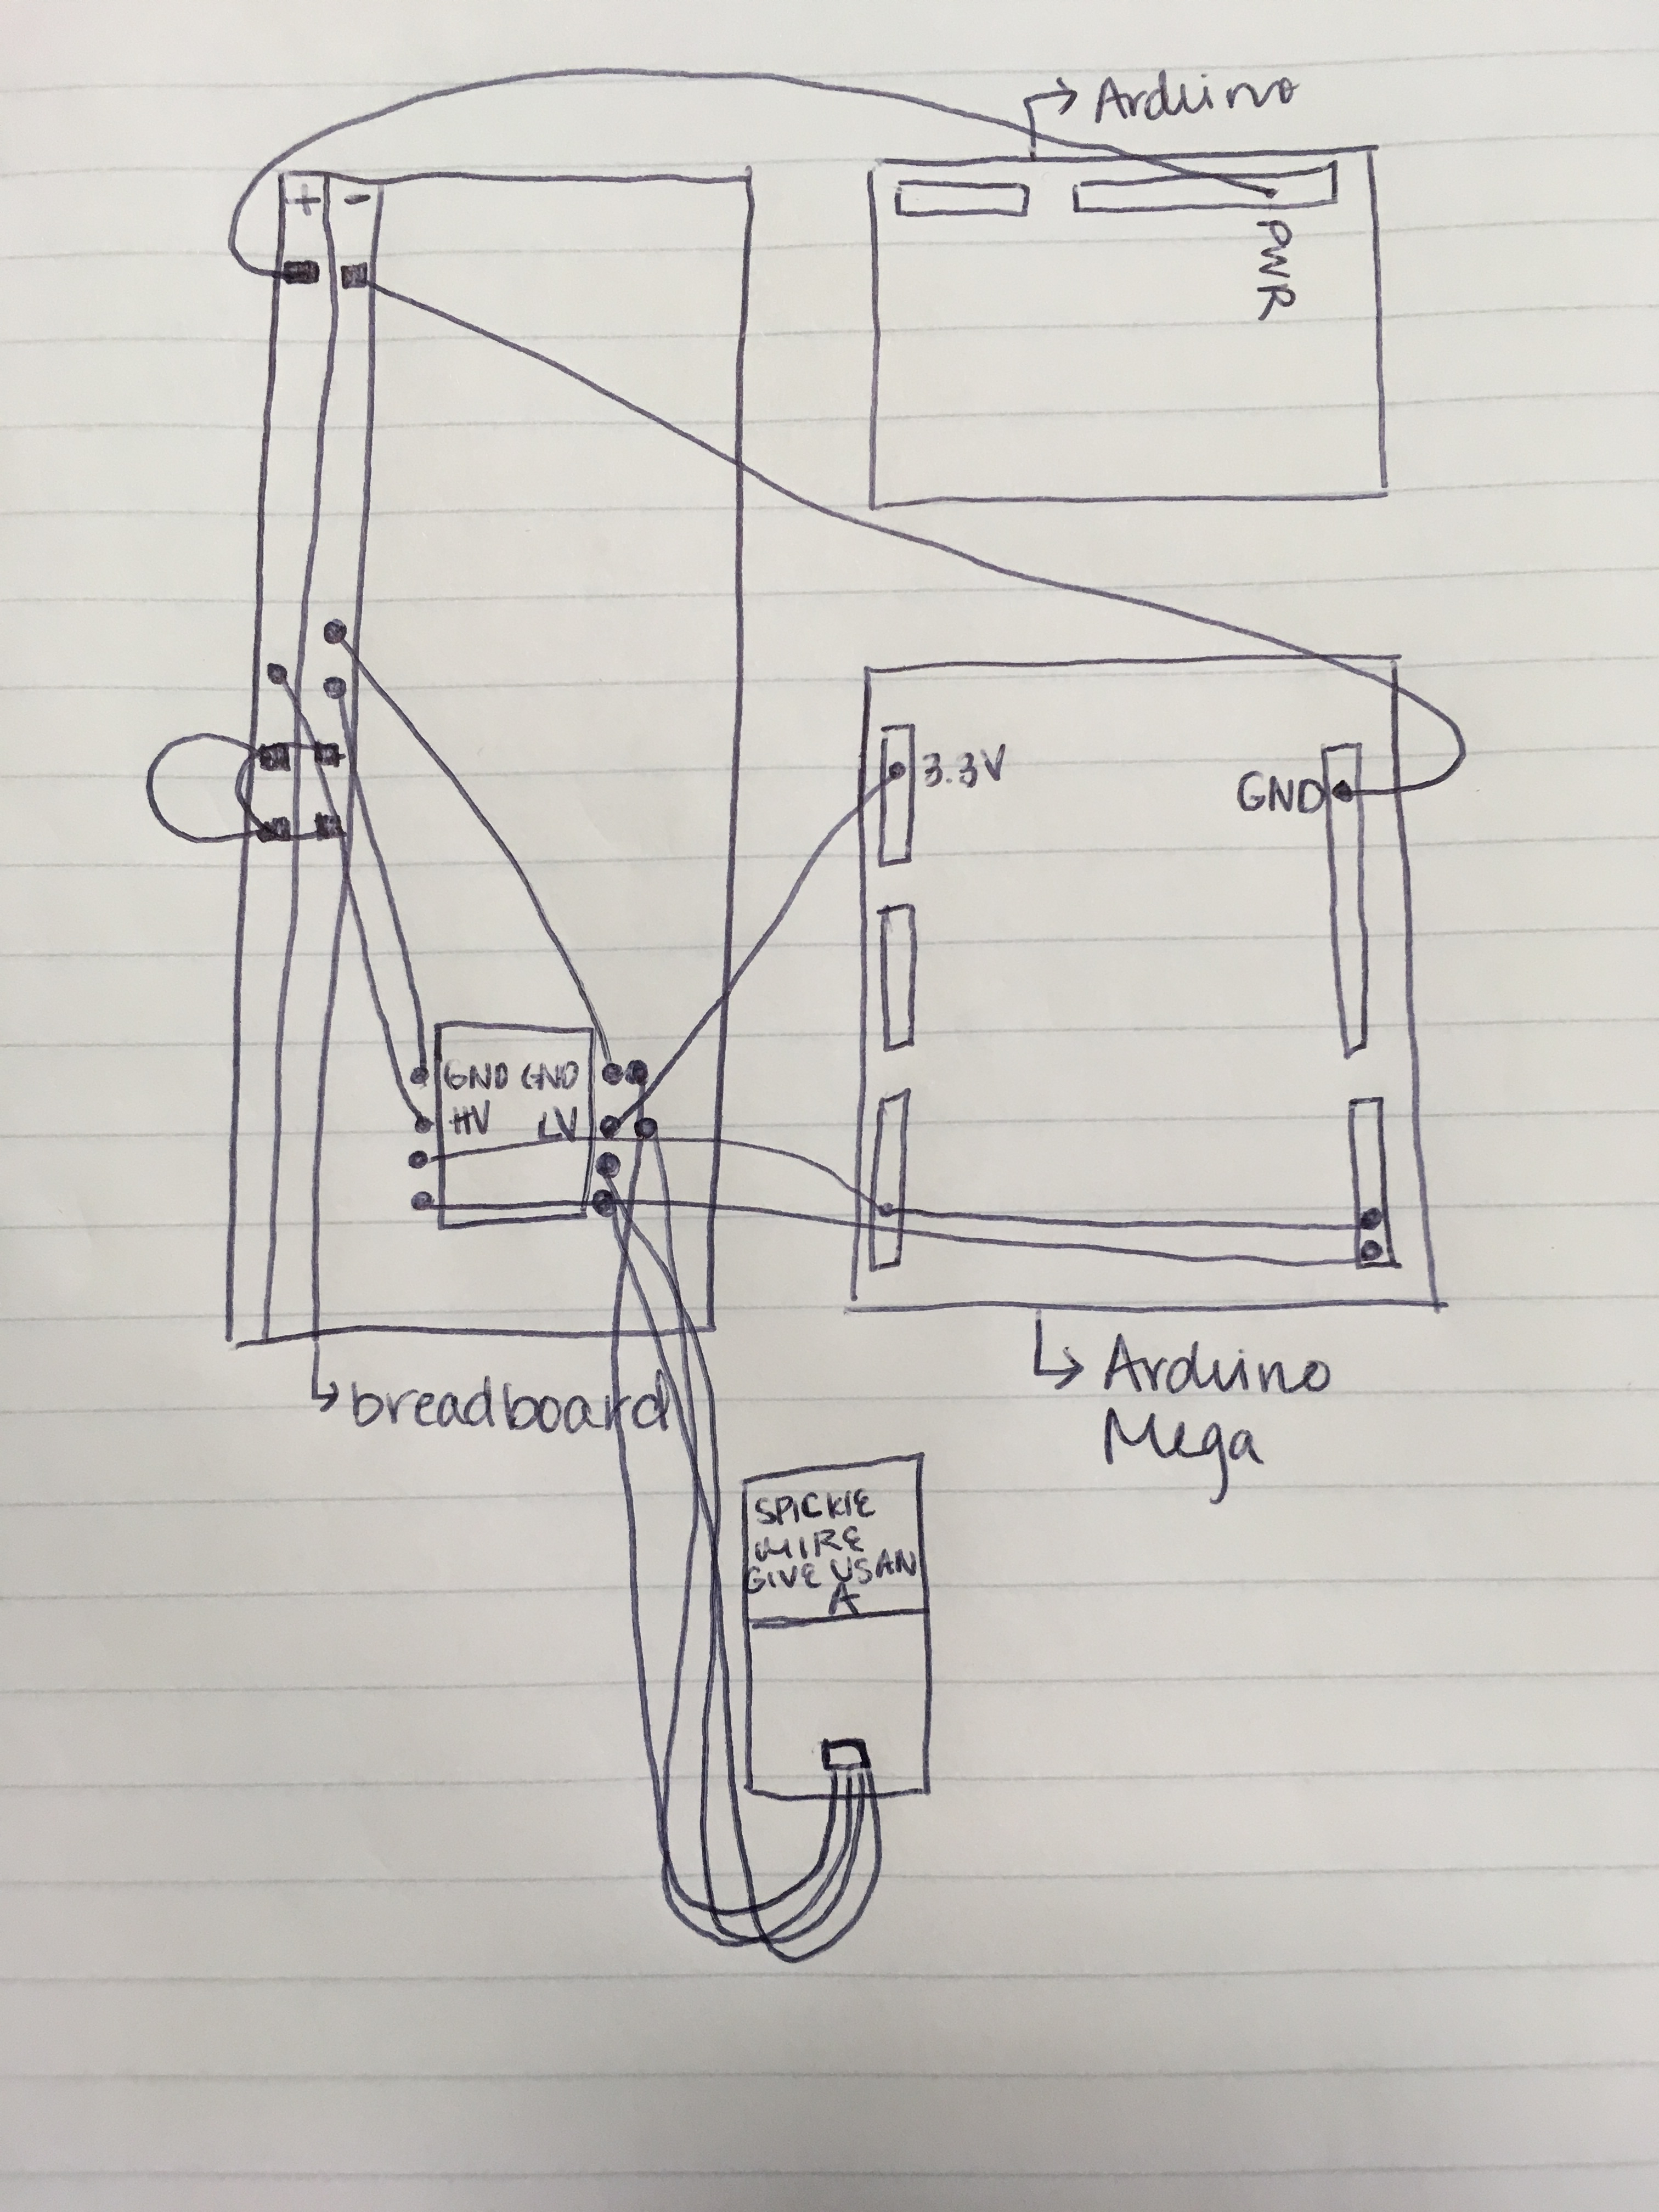 Arduino
+ -
PWR
3.3V
GND
GND GND
HV LV
breadboard
Arduino
Mega
SPICKIE
WIRE
GIVE US AN
A